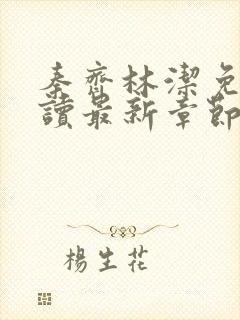 秦齊林潔免
讀最新章節
楊生花